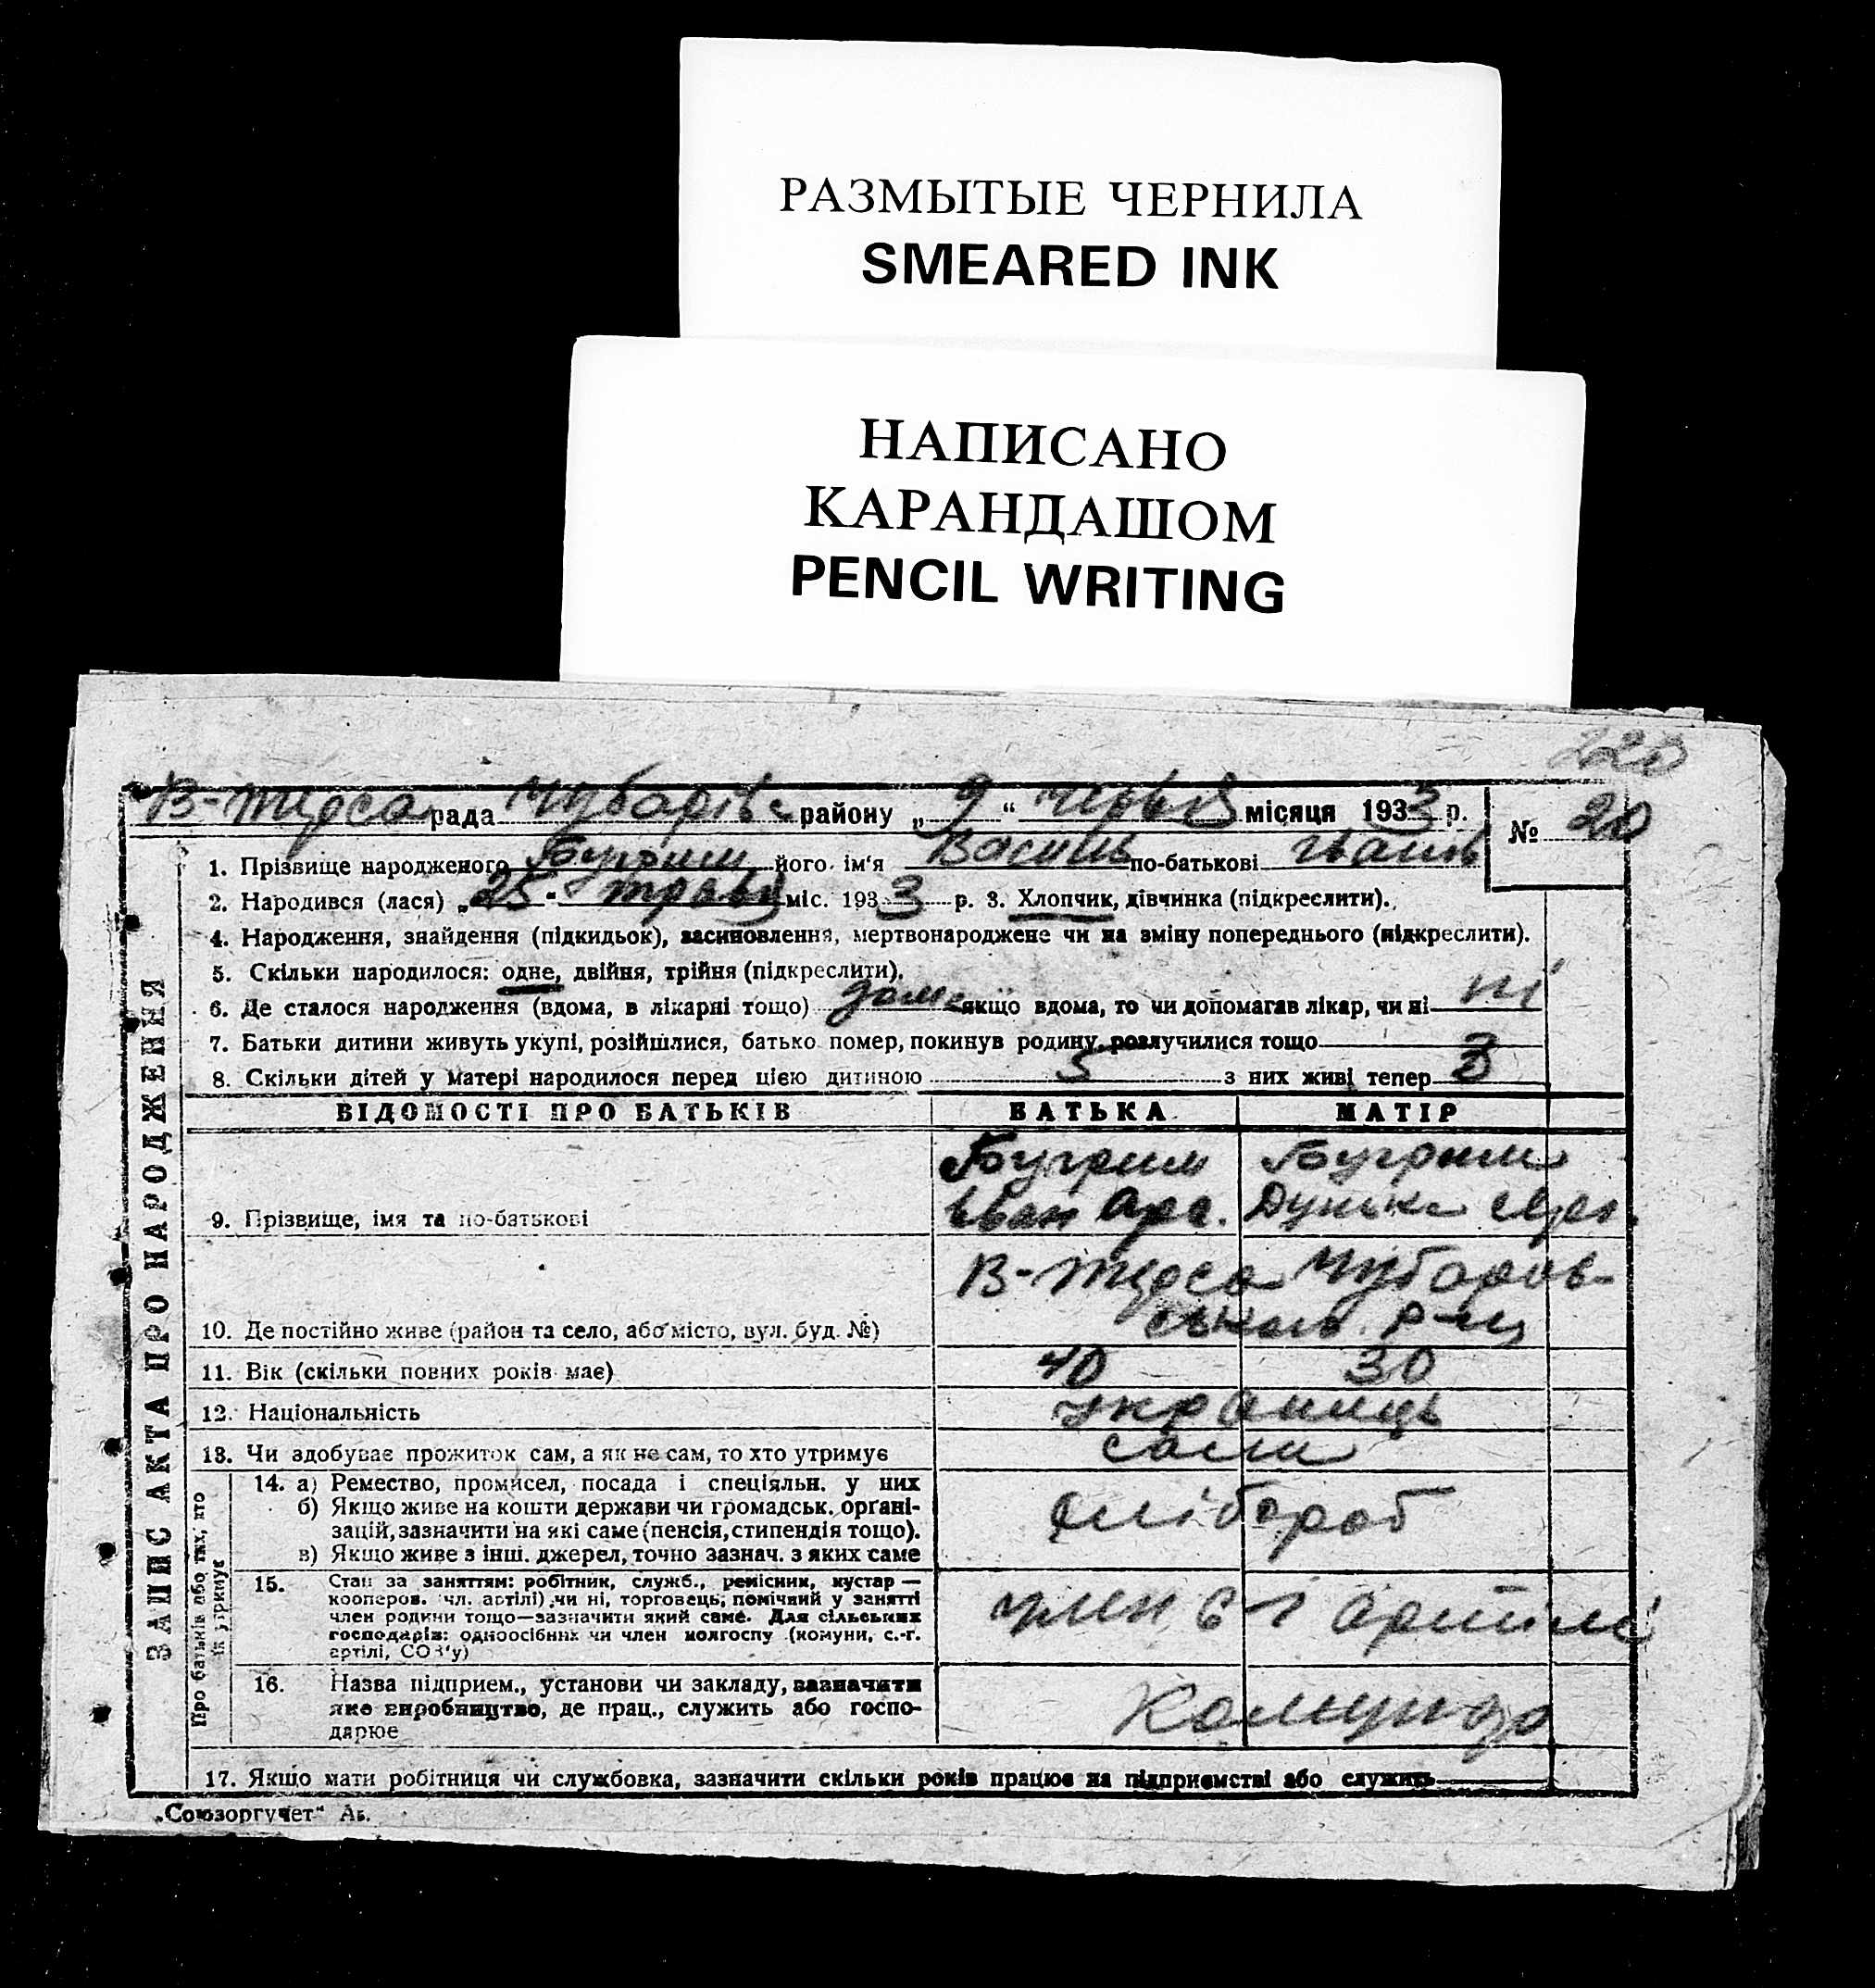 РАЗМЫТЫЕ ЧЕРНИЛА
SMEARED INK
НАПИСАНО
КАРАНДАШОМ
PENCIL WRITING
220
рада Чубарівс району „ 9 “ червня місяця 1933 р. № 20
1. Прізвище народженого Бугрим його ім'я Василь по-батькові Іванов
2. Народився (лася) „25“ травня міс. 1933 р. 3. Хлопчик, дівчинка (підкреслити).
4. Народження, знайдення (підкидьок), засиновлення, мертвонароджене чи на зміну попереднього (підкреслити).
5. Скільки народилося: одне, двійня, трійня (підкреслити).
6. Де сталося народження (вдома, в лікарні тощо) дома якщо вдома, то чи допомагав лікар, чи ні ні
7. Батьки дитини живуть укупі, розійшлися, батько помер, покинув родину, розлучилися тощо
8. Скільки дітей у матері народилося перед цією дитиною 5 з них живі тепер 3
ВІДОМОСТІ ПРО БАТЬКІВ БАТЬКА МАТІР
Бугрим Бугрим
9. Прізвище, імя та по-батькові Іван Арс. Дунька
Чубаров-
10. Де постійно живе (район та село, або місто, вул. буд. №) ського р-ну
11. Вік (скільки повних років має) 40 30
12. Національність українць
13. Чи здобуває прожиток сам, а як не сам, то хто утримує сами
14. а) Ремество, промисел, посада і спеціяльн. у них
б) Якщо живе на кошти держави чи громадськ. органі-
зацій, зазначити на які саме (пенсія, стипендія тощо).
в) Якщо живе з інш. джерел, точно зазнач. з яких саме
хлібороб
15. Стан за заняттям: робітник, служб., ремісник, кустар —
кооперов. (чл. артілі) чи ні, торговець, помічний у занятті
член родини тощо—зазначити який саме. Для сільських
господарів: одноосібник чи член колгоспу (комуни, с.-г.
артілі, СОЗ'у)
член с г артилі
16. Назва підприєм., установи чи закладу, зазначити
яке виробництво, де прац., служить або госпо-
дарює
17. Якщо мати робітниця чи службовка, зазначити скільки років працює на підприємстві або служить
„Союзоргучет“ Ав.
ЗАПИС АКТА ПРО НАРОДЖЕННЯ
Про батьків або тих, хто
їх утримує